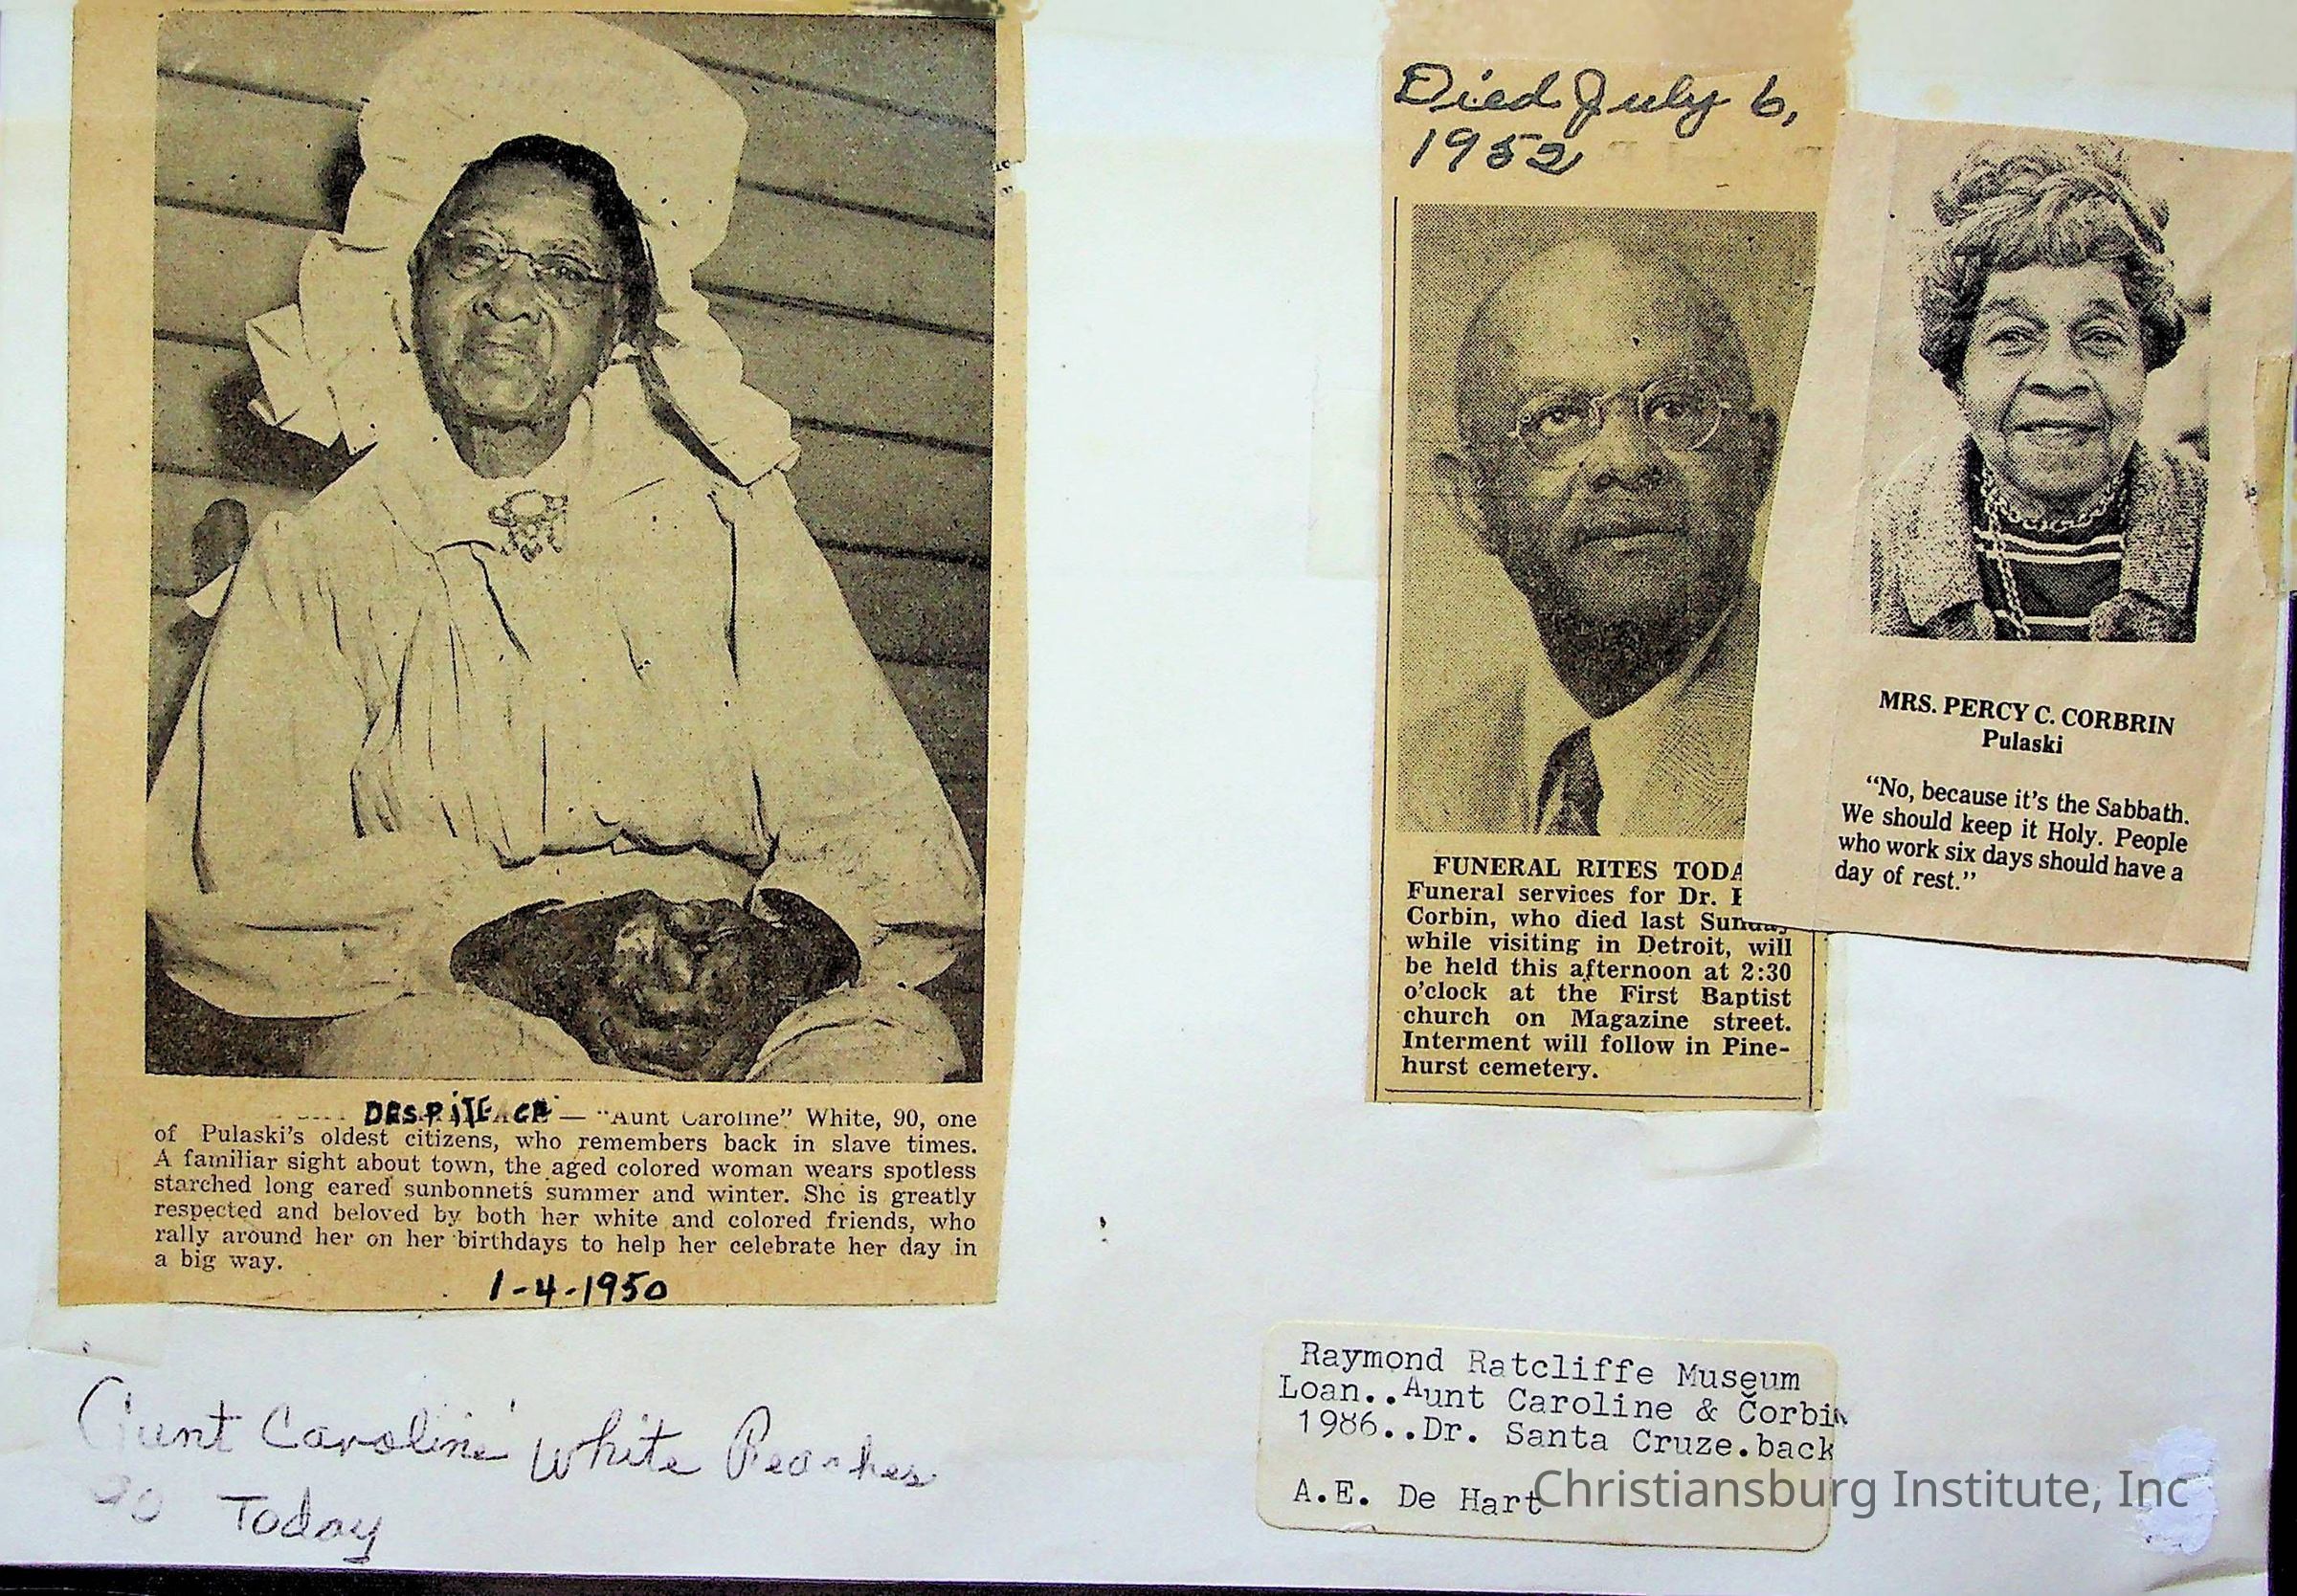 DESPITE AGE — "Aunt Caroline" White, 90, one
of Pulaski's oldest citizens, who remembers back in slave times.
A familiar sight about town, the aged colored woman wears spotless
starched long eared sunbonnets summer and winter. She is greatly
respected and beloved by both her white and colored friends, who
rally around her on her birthdays to help her celebrate her day in
a big way.
1-4-1950
Aunt Caroline White Reaches
90 Today
Died July 6,
1952
FUNERAL RITES TODA
Funeral services for Dr.
Corbin, who died last Sunday
while visiting in Detroit, will
be held this afternoon at 2:30
o'clock at the First Baptist
church on Magazine street.
Interment will follow in Pine-
hurst cemetery.
MRS. PERCY C. CORBRIN
Pulaski
"No, because it's the Sabbath.
We should keep it Holy. People
who work six days should have a
day of rest."
Raymond Ratcliffe Museum
Loan..Aunt Caroline & Corbin
1986..Dr. Santa Cruze.back
A.E. De Hart
Christiansburg Institute, Inc